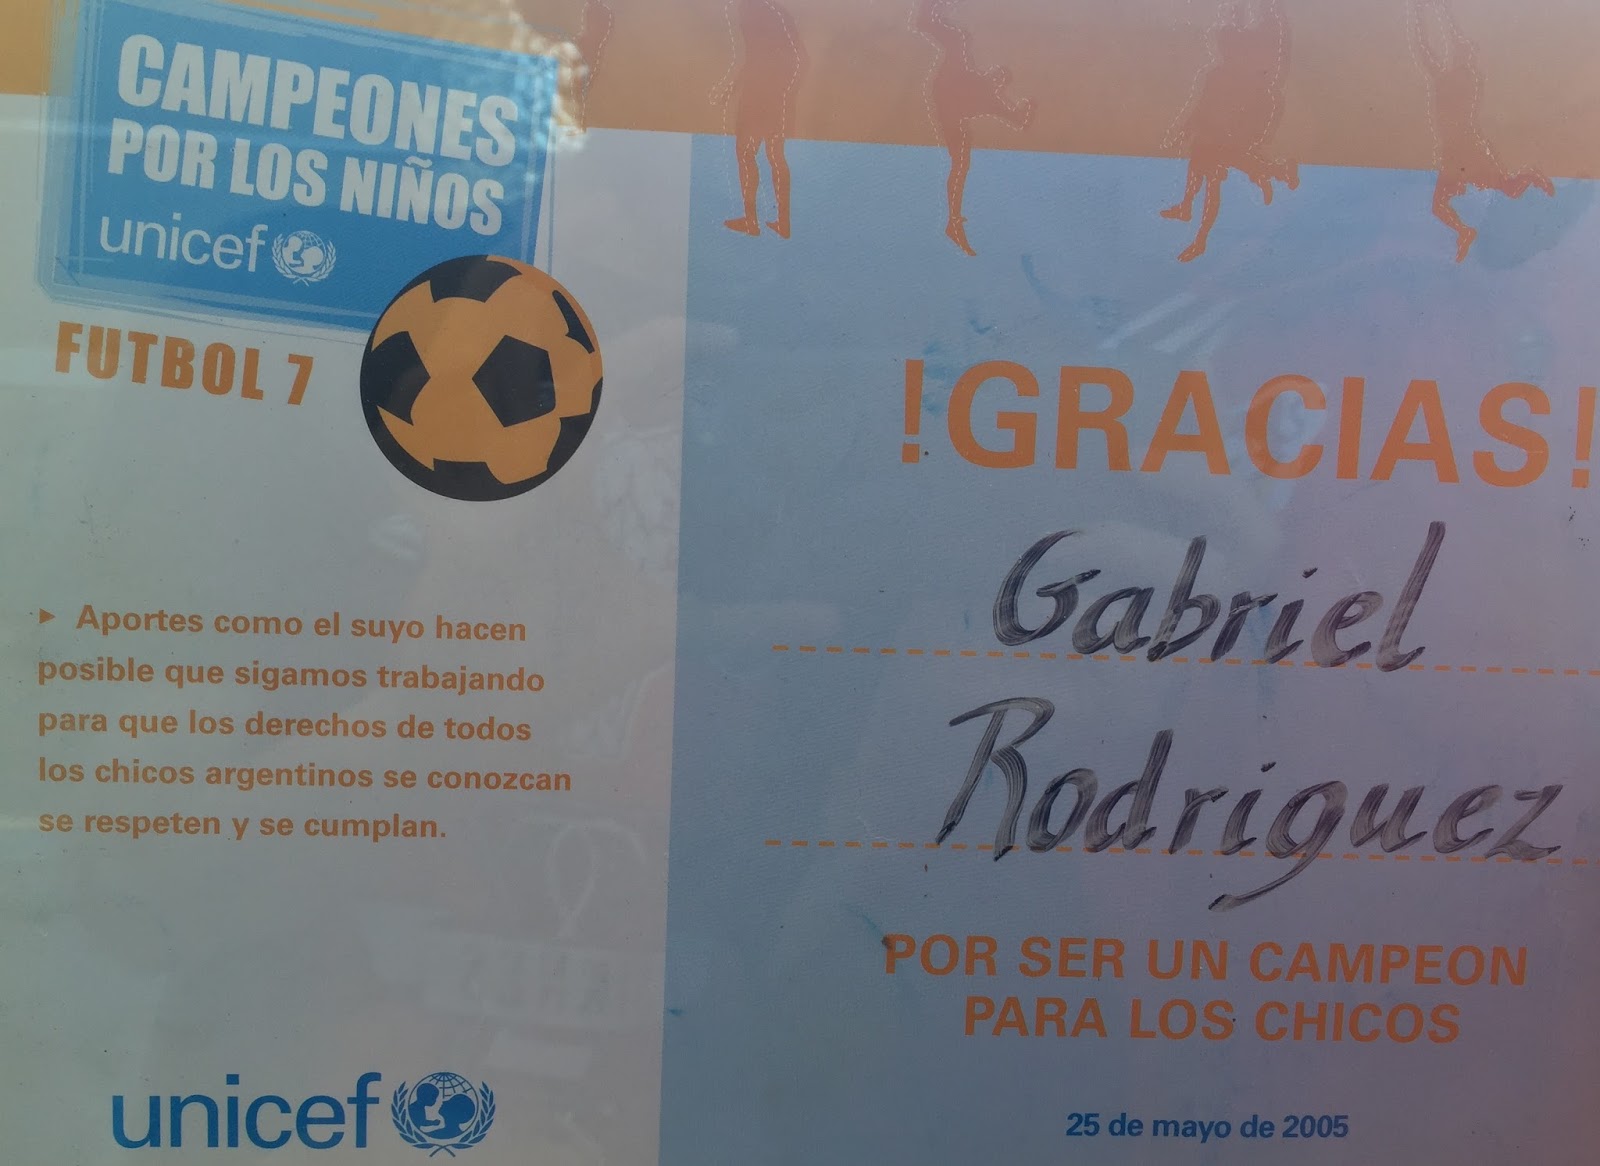 CAMPEONES
POR LOS NIÑOS
unicef
FUTBOL 7
► Aportes como el suyo hacen
posible que sigamos trabajando
para que los derechos de todos
los chicos argentinos se conozcan
se respeten y se cumplan.
unicef
!GRACIAS!
Gabriel
Rodriguez
POR SER UN CAMPEON
PARA LOS CHICOS
25 de mayo de 2005